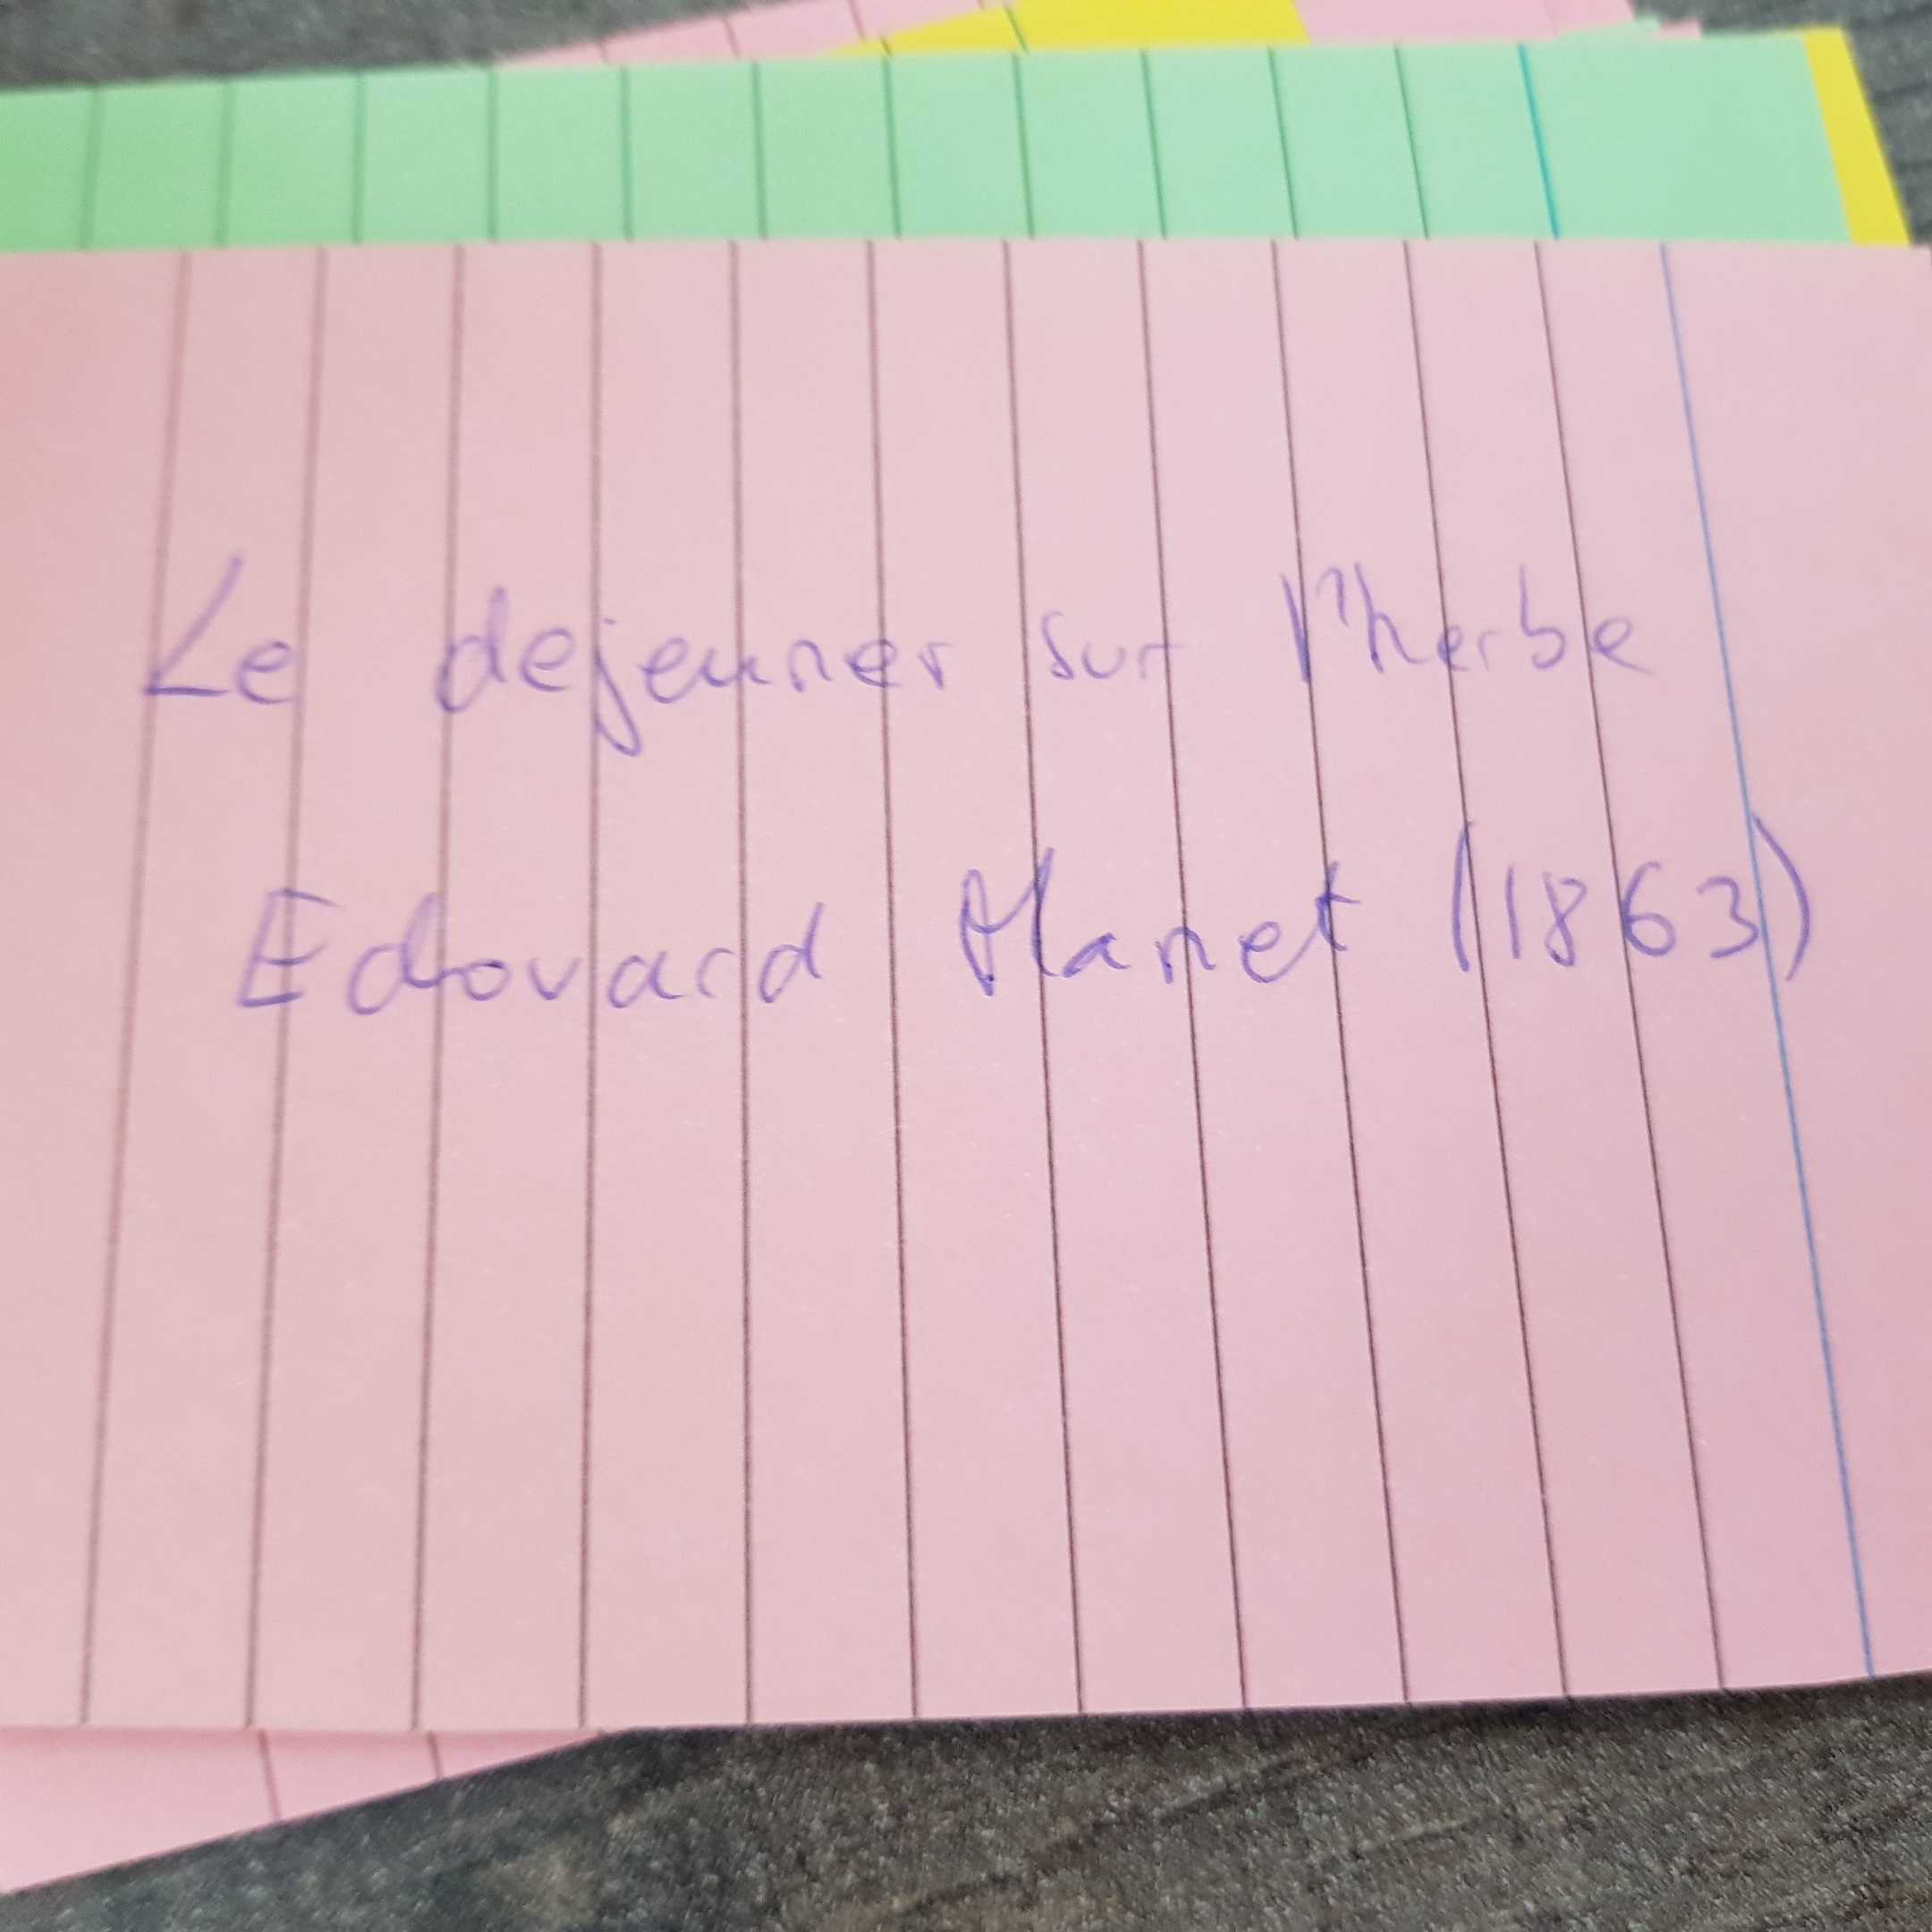 Le dejeuner sur l'herbe
Edouard Manet (1863)